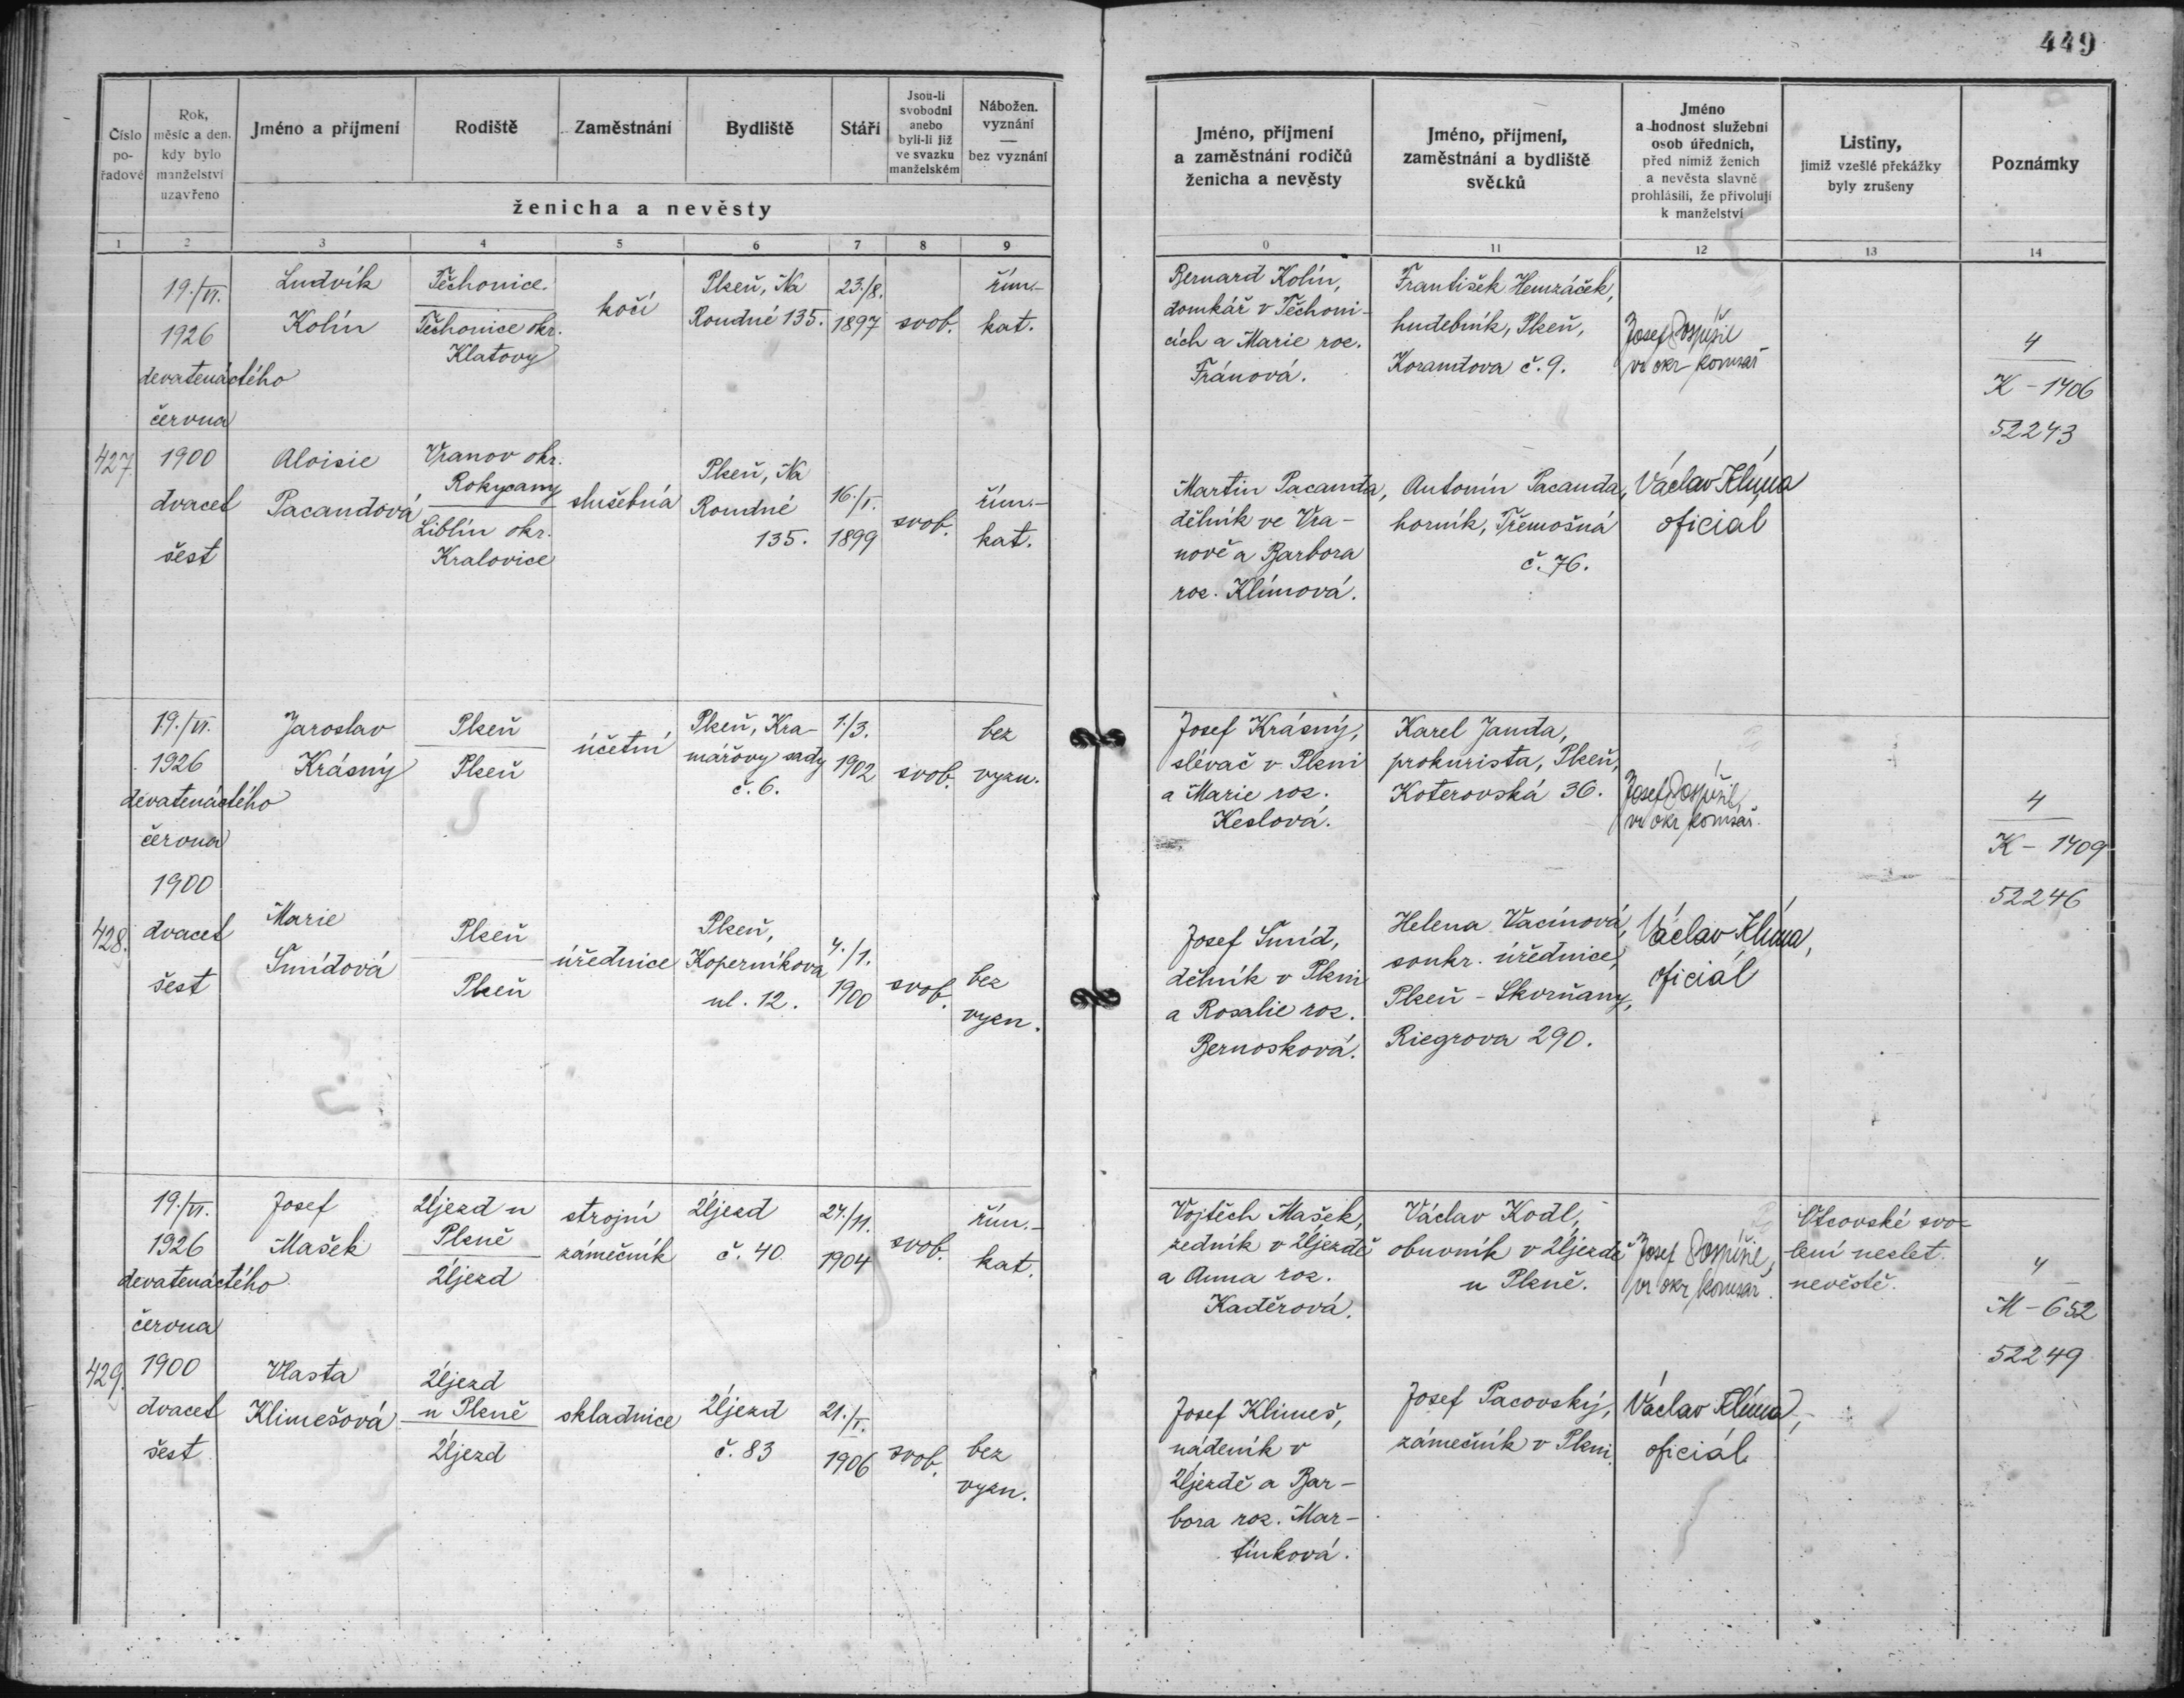 449
Číslo po-řadové
Rok, měsíc a den, kdy bylo manželství uzavřeno
Jméno a příjmení
Rodiště
Zaměstnání
Bydliště
Stáří
Jsou-li svobodni anebo byli-li již ve svazku manželském
Nábožen. vyznání — bez vyznání
ženicha a nevěsty
Jméno, příjmení a zaměstnání rodičů ženicha a nevěsty
Jméno, příjmení, zaměstnání a bydliště svědků
Jméno a hodnost služební osob úředních, před nimiž ženich a nevěsta slavně prohlásili, že přivolují k manželství
Listiny, jimiž vzešlé překážky byly zrušeny
Poznámky
1 2 3 4 5 6 7 8 9
0 11 12 13 14
427.
19./VI.
1926
devatenáctého
června
1900
dvacet
šest
Ludvík
Kolín
Těchonice.
Těchonice okr.
Klatovy
kočí
Plzeň, Na
Roudné 135.
23./8.
1897
svob.
řím.-
kat.
Bernard Kolín,
domkář v Těchoni-
cích a Marie roz.
Fránová.
František Hemzáček,
hudebník, Plzeň,
Korandova č. 9.
Josef Pospíšil
vr okr komisař
4
K - 1406
52243
Aloisie
Pacandová
Vranov okr.
Rokycany
Liblín okr.
Kralovice
služebná
Plzeň, Na
Roudné
135.
16./I.
1899
svob.
řím.-
kat.
Martin Pacanda,
dělník ve Vra-
nově a Barbora
roz. Klímová.
Antonín Pacanda,
horník, Třemošná
č. 76.
Václav Klíma
oficiál
428.
19./VI.
1926
devatenáctého
června
1900
dvacet
šest
Jaroslav
Krásný
Plzeň
Plzeň
účetní
Plzeň, Kra-
mářovy sady
č. 6.
1./3.
1902
svob.
bez
vyzn.
Josef Krásný,
slévač v Plzni
a Marie roz.
Keslová.
Karel Janda,
prokurista, Plzeň,
Koterovská 36.
Josef Pospíšil,
vr okr komisař.
4
K - 1409
52246
Marie
Šmídová
Plzeň
Plzeň
úřednice
Plzeň,
Koperníkova
ul. 12.
4./1.
1900
svob.
bez
vyzn.
Josef Šmíd,
dělník v Plzni
a Rosalie roz.
Bernosková.
Helena Vacínová,
soukr. úřednice,
Plzeň - Skvrňany,
Riegrova 290.
Václav Klíma,
oficiál
429.
19./VI.
1926
devatenáctého
června
1900
dvacet
šest
Josef
Mašek
Újezd u
Plzně
Újezd
strojní
zámečník
Újezd
č. 40
24./11.
1904
svob.
řím.-
kat.
Vojtěch Mašek,
zedník v Újezdě
a Anna roz.
Kaděrová.
Václav Kodl,
obuvník v Újezdě
u Plzně.
Josef Pospíšil,
vr okr komisař.
Otcovské svo-
lení nezlet.
nevěstě.
4
M - 652
52249
Vlasta
Klimešová
Újezd
u Plzně
Újezd
skladnice
Újezd
č. 83
21./I.
1906
svob.
bez
vyzn.
Josef Klimeš,
nádeník v
Újezdě a Bar-
bora roz. Mar-
tínková.
Josef Pacovský,
zámečník v Plzni.
Václav Klíma,
oficiál